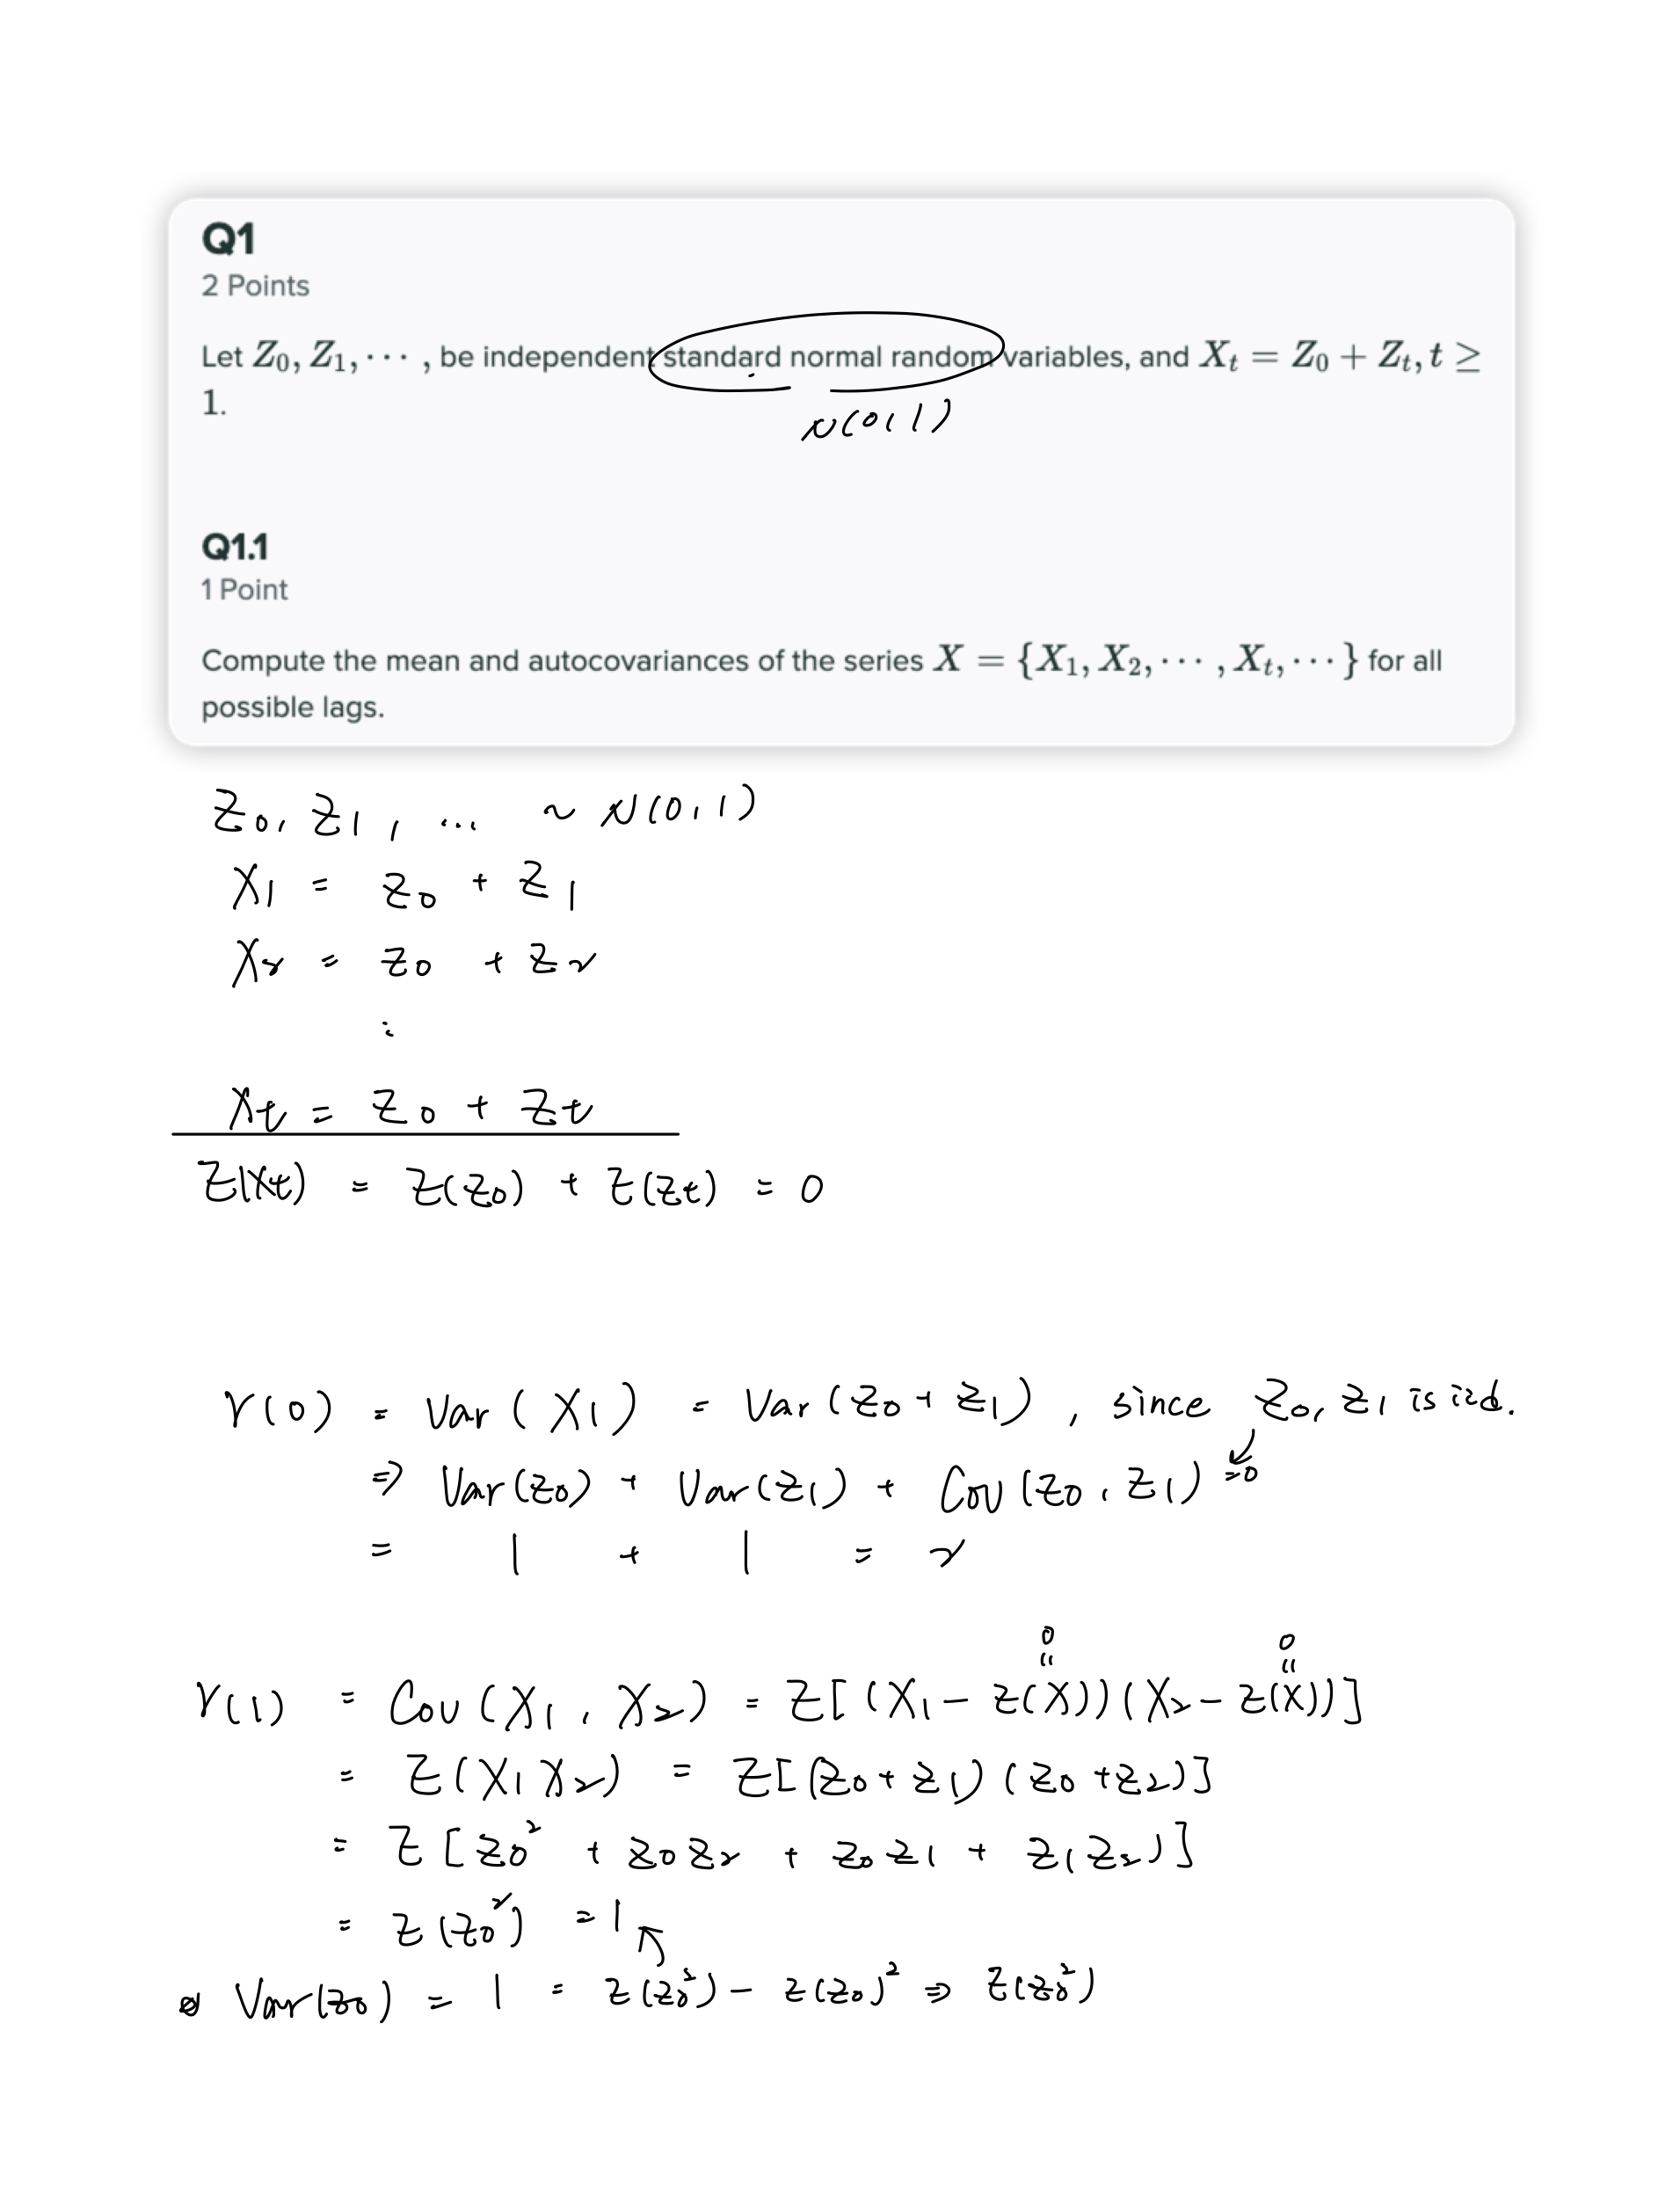 Q1
2 Points
Let Z₀, Z₁, ⋯ , be independent standard normal random variables, and Xₜ = Z₀ + Zₜ, t ≥
1.
N(0,1)
Q1.1
1 Point
Compute the mean and autocovariances of the series X = {X₁, X₂, ⋯ , Xₜ, ⋯ } for all
possible lags.
Z₀, Z₁, ... ~ N(0,1)
X₁ = Z₀ + Z₁
X₂ = Z₀ + Z₂
⋮
Xₜ = Z₀ + Zₜ
E(Xₜ) = E(Z₀) + E(Zₜ) = 0
γ(0) = Var(X₁) = Var(Z₀ + Z₁), since Z₀, Z₁ is iid.
⇒ Var(Z₀) + Var(Z₁) + Cov(Z₀, Z₁) =0
= 1 + 1 = 2
0 0
γ(1) = Cov(X₁, X₂) = E[(X₁ − E(X))(X₂ − E(X))]
= E(X₁X₂) = E[(Z₀ + Z₁)(Z₀ + Z₂)]
= E[Z₀² + Z₀Z₂ + Z₀Z₁ + Z₁Z₂)]
= E(Z₀²) = 1
Var(Z₀) = 1 = E(Z₀²) − E(Z₀)² ⇒ E(Z₀²)